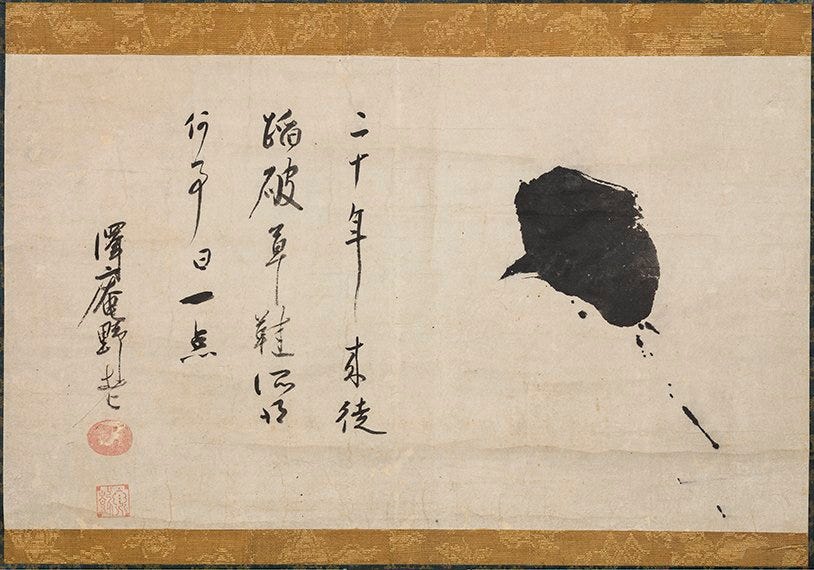 二十年来徒
踏破草鞋所得
何事曰一点
澤庵野老